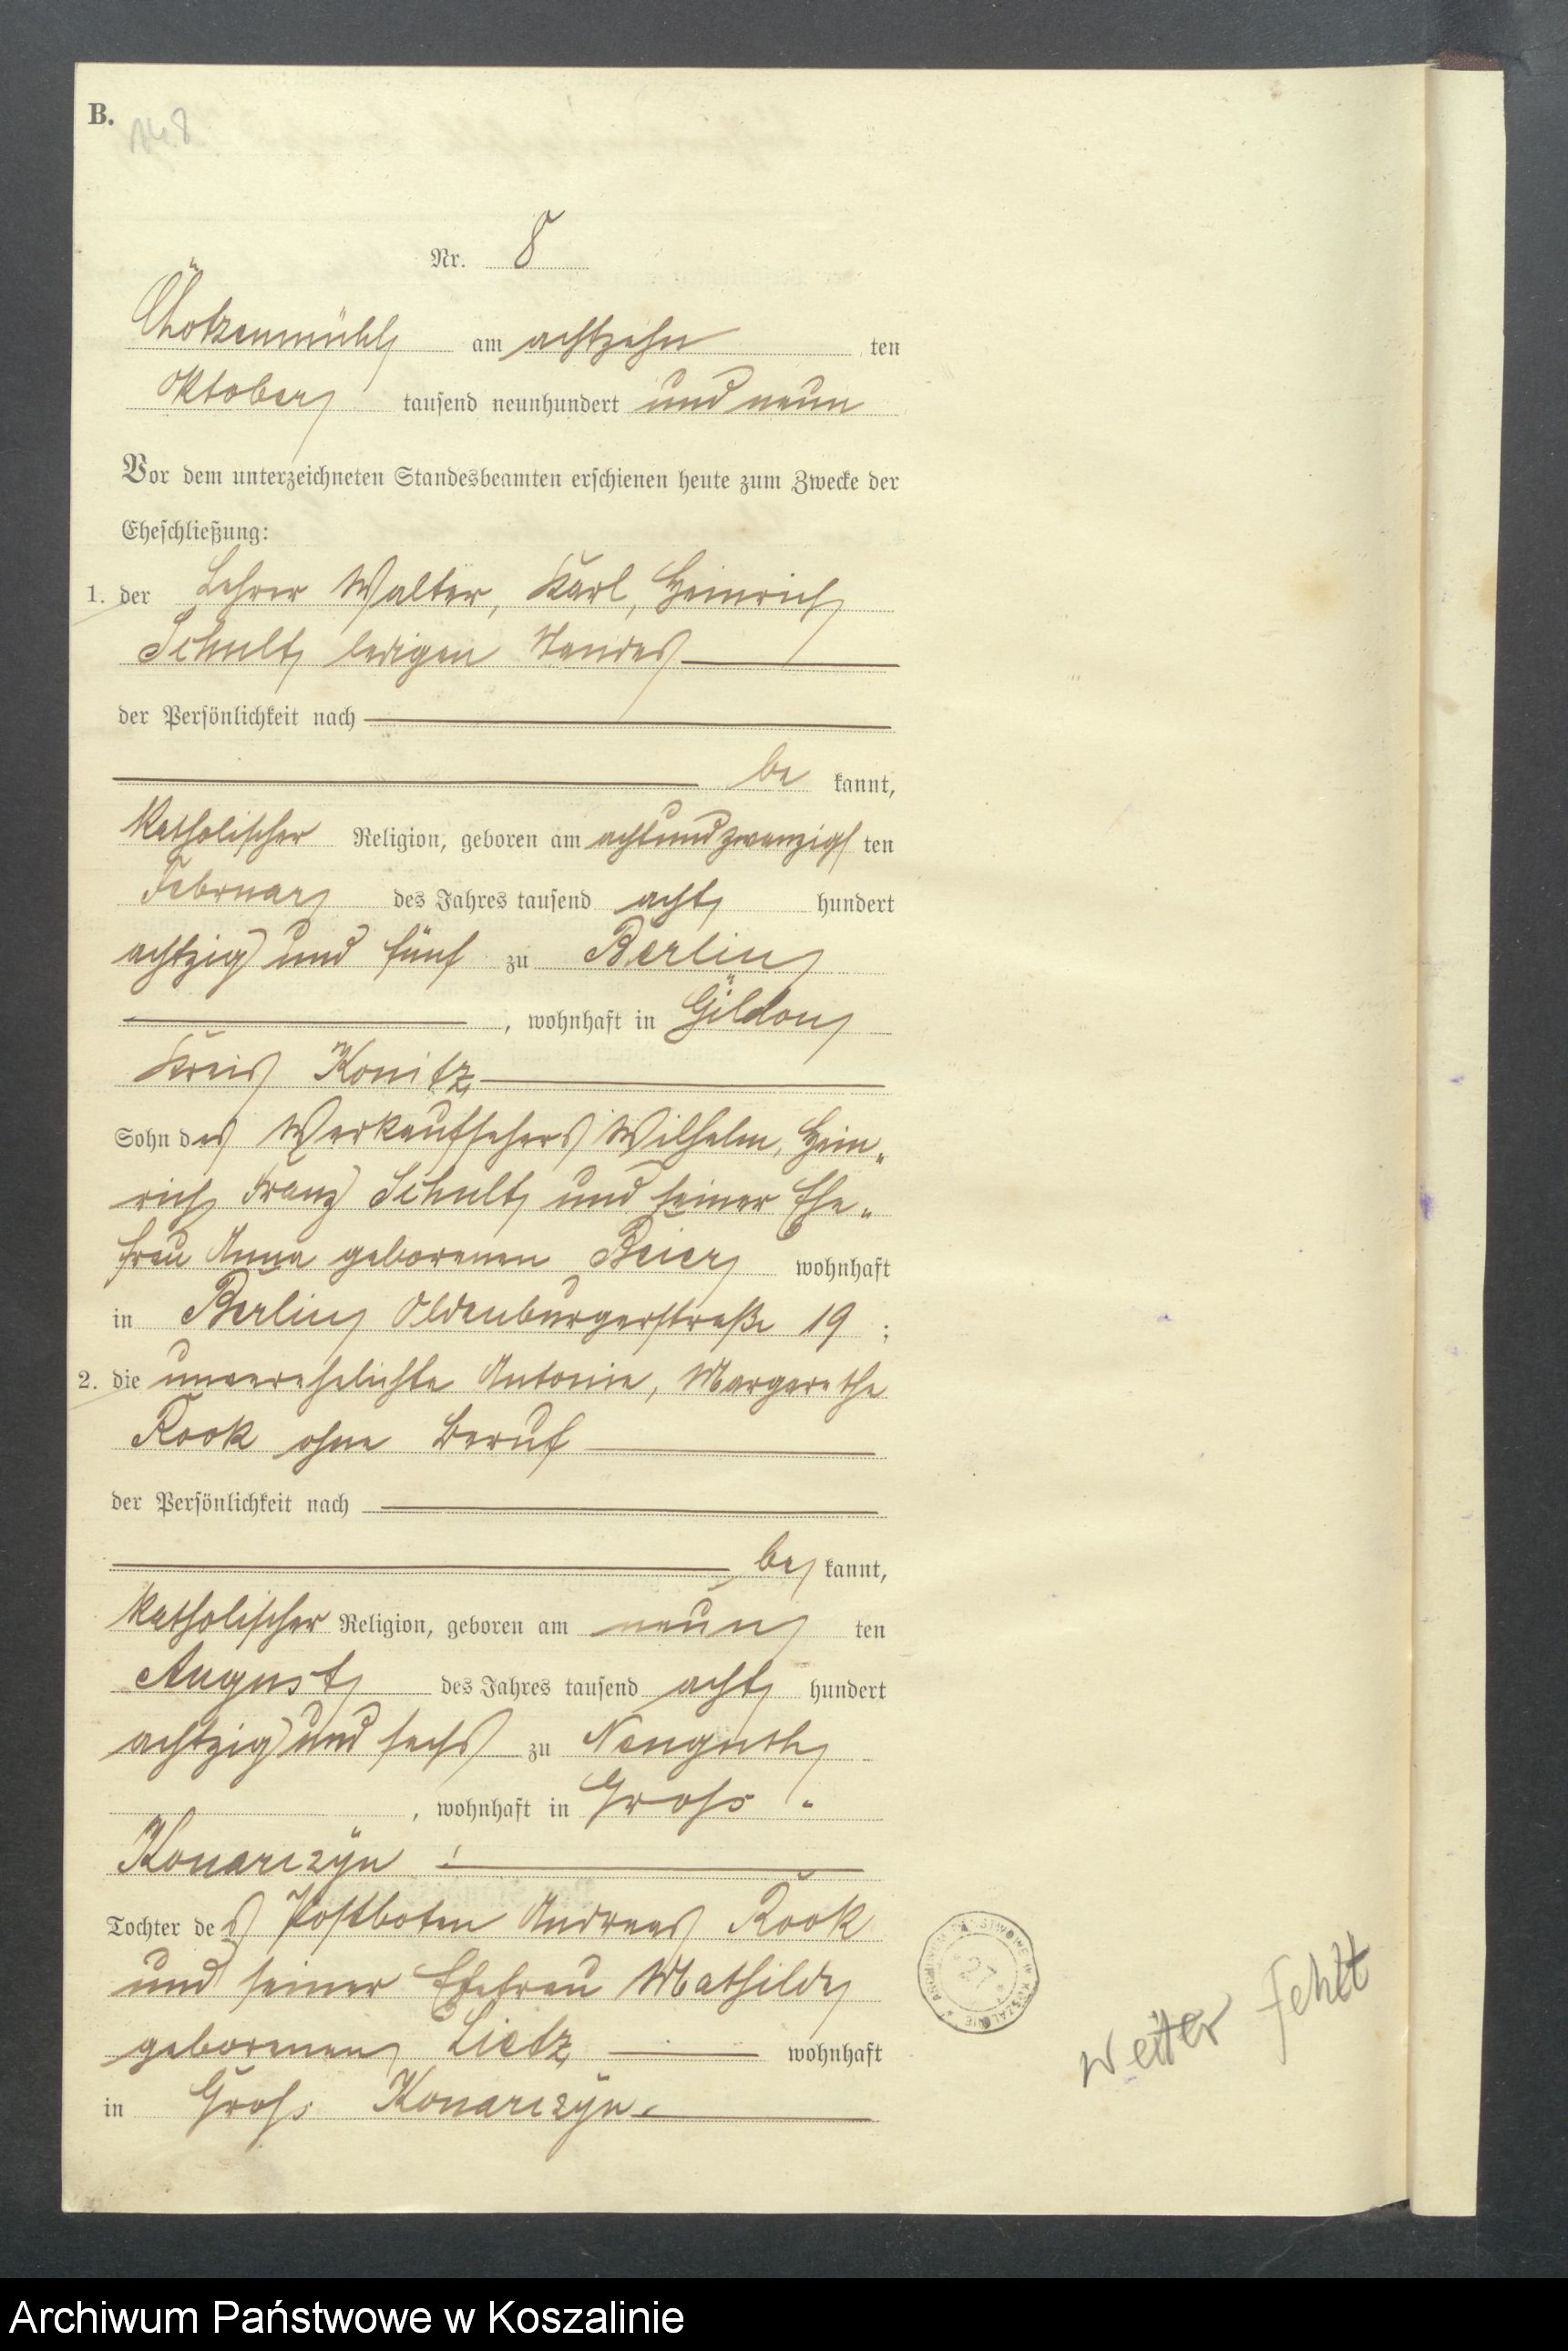 B.
Nr. 8
Chotzenmühl am achtzehn ten
Oktober tausend neunhundert und neun
Vor dem unterzeichneten Standesbeamten erschienen heute zum Zwecke der
Eheschließung:
1. der Lehrer Walter, Karl, Heinrich
Schult ledigen Standes
der Persönlichkeit nach
be kannt,
katholischer Religion, geboren am achtundzwanzigs ten
Februar des Jahres tausend acht hundert
achtzig und fünf zu Berlin
, wohnhaft in Gildon
Kreis Konitz
Sohn des Werkaufsehers Wilhelm, Hein„
rich Franz Schult und seiner Ehe„
frau Anna geborenen Beier wohnhaft
in Berlin Oldenburgerstraße 19 ;
2. die unverehelichte Antonie, Margarethe
Rook ohne Beruf
der Persönlichkeit nach
be kannt,
katholischer Religion, geboren am neun ten
August des Jahres tausend acht hundert
achtzig und sechs zu Neuguth
, wohnhaft in Gross
Konarczyn
Tochter des Postboten Andreas Rook
und seiner Ehefrau Mathilde
geborenen Lietz wohnhaft
in Gross Konarczyn.
ARCHIWUM PAŃSTWOWE W KOSZALINIE
27
weiter fehlt
Archiwum Państwowe w Koszalinie